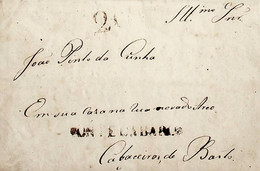 21
Ill.mo Snr.
João Pinto da Cunha
Em sua caza na Rua nova do Arco
PONTE CABAROS
Cabaceiras de Basto